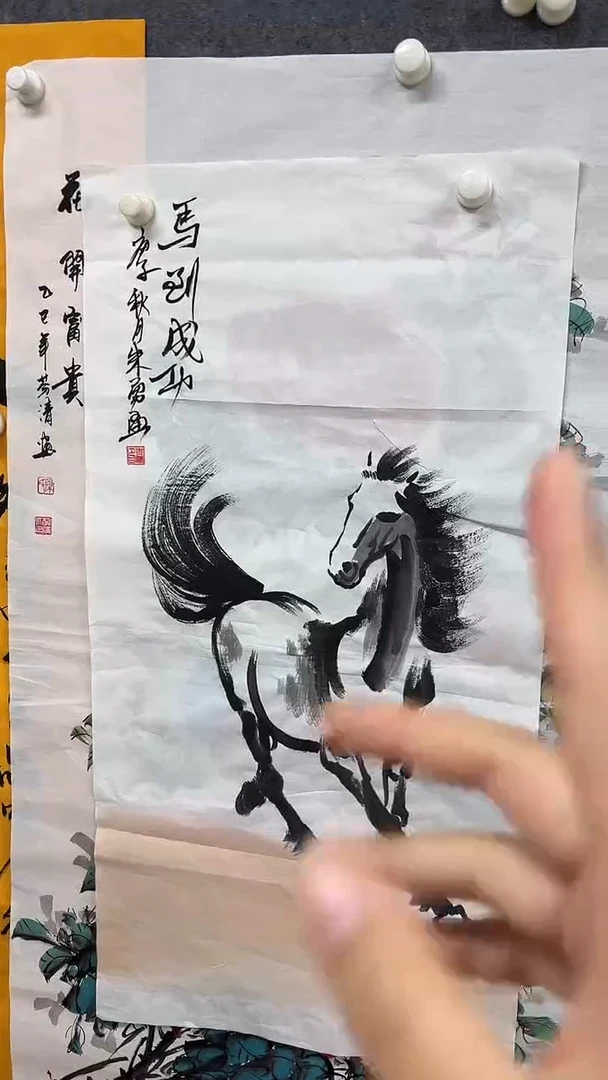 馬到成功
庚子秋月朱勇画
花開富貴
乙巳年芳清画